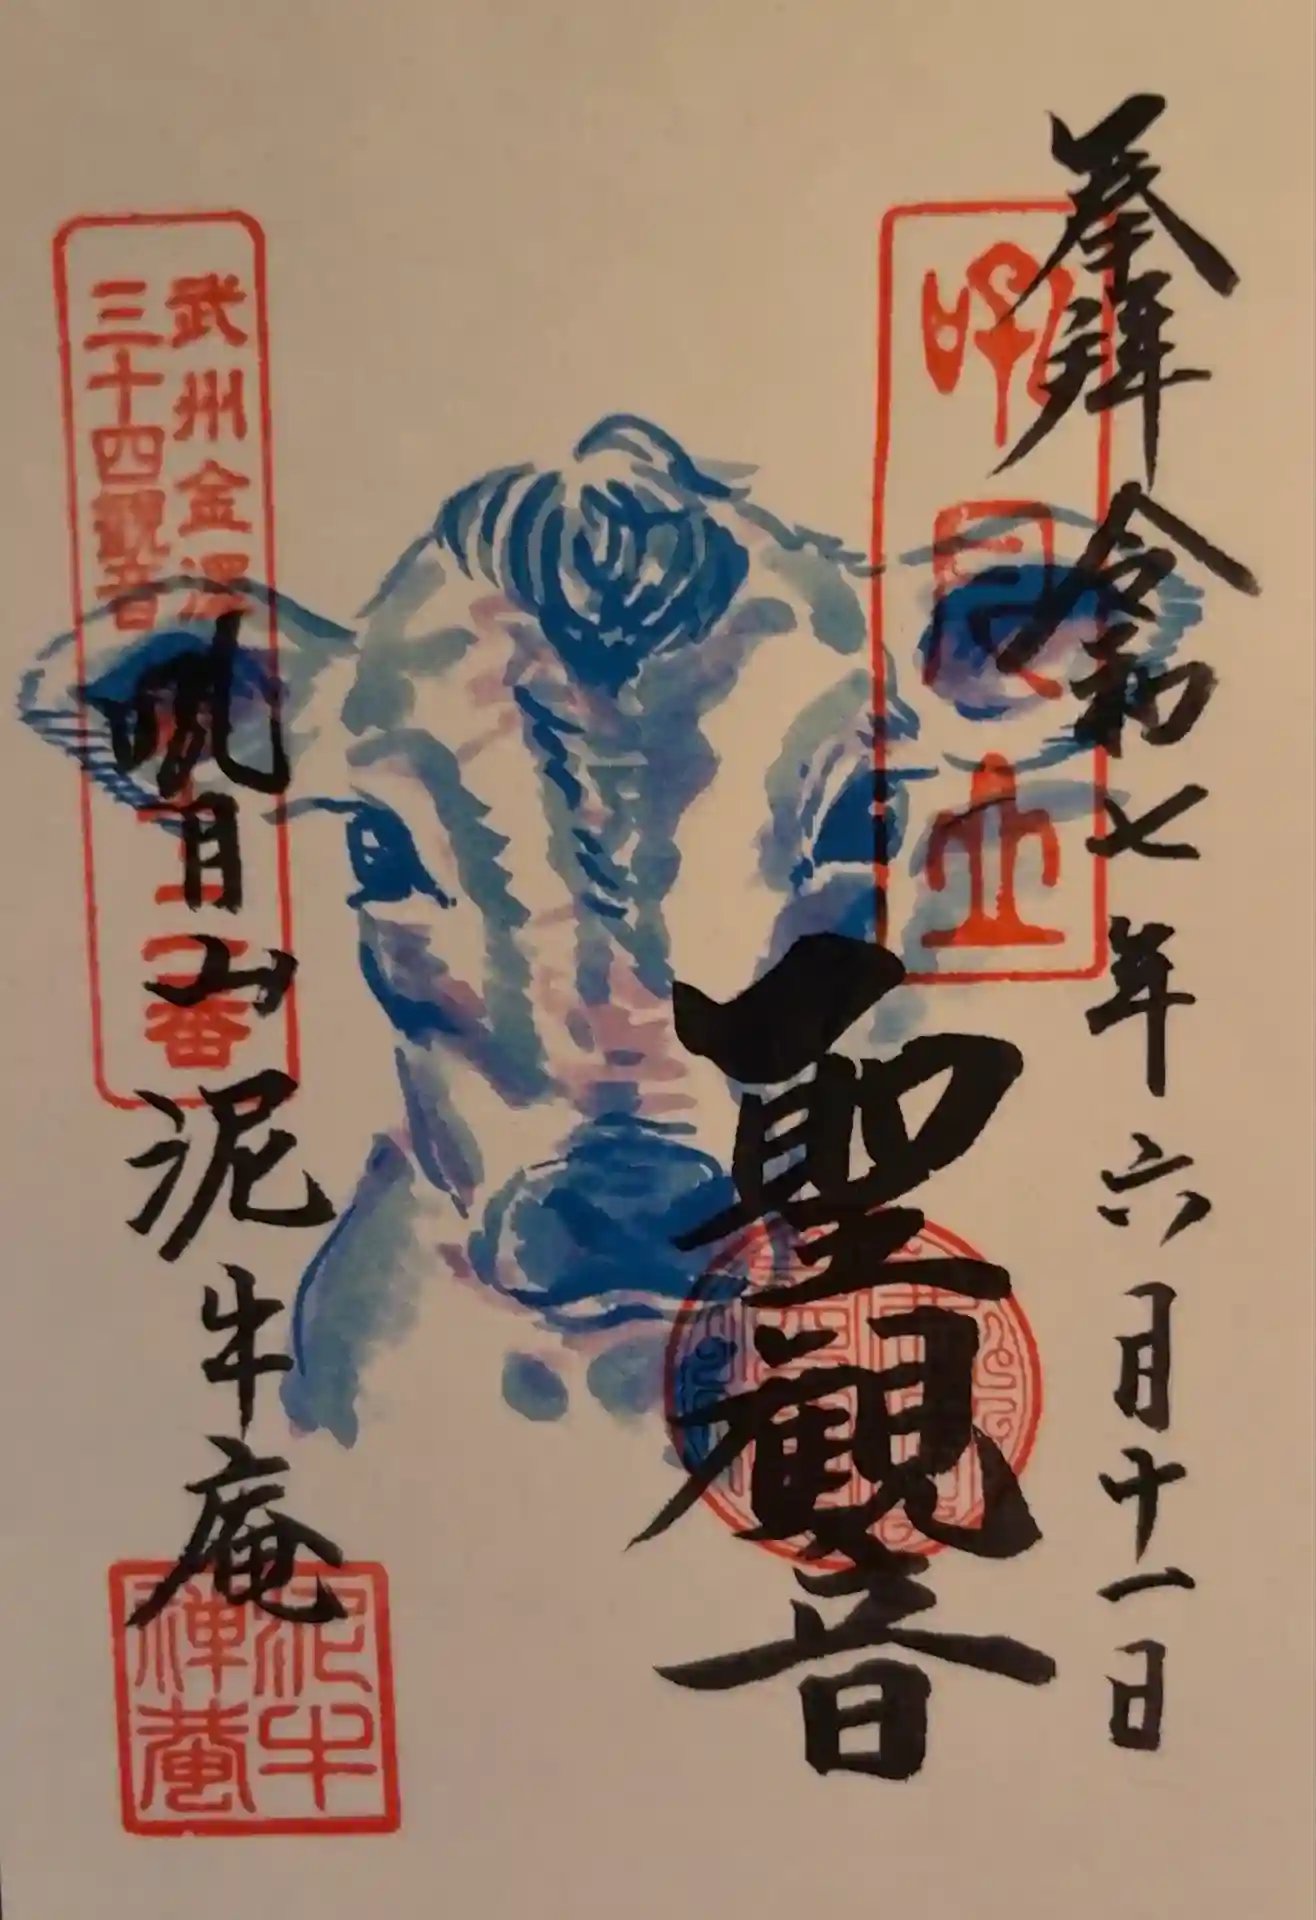 奉拝 令和七年六月十一日
吼月山
聖観音
武州金澤
三十四觀音
番
吼月山 泥牛庵
泥牛
禅菴